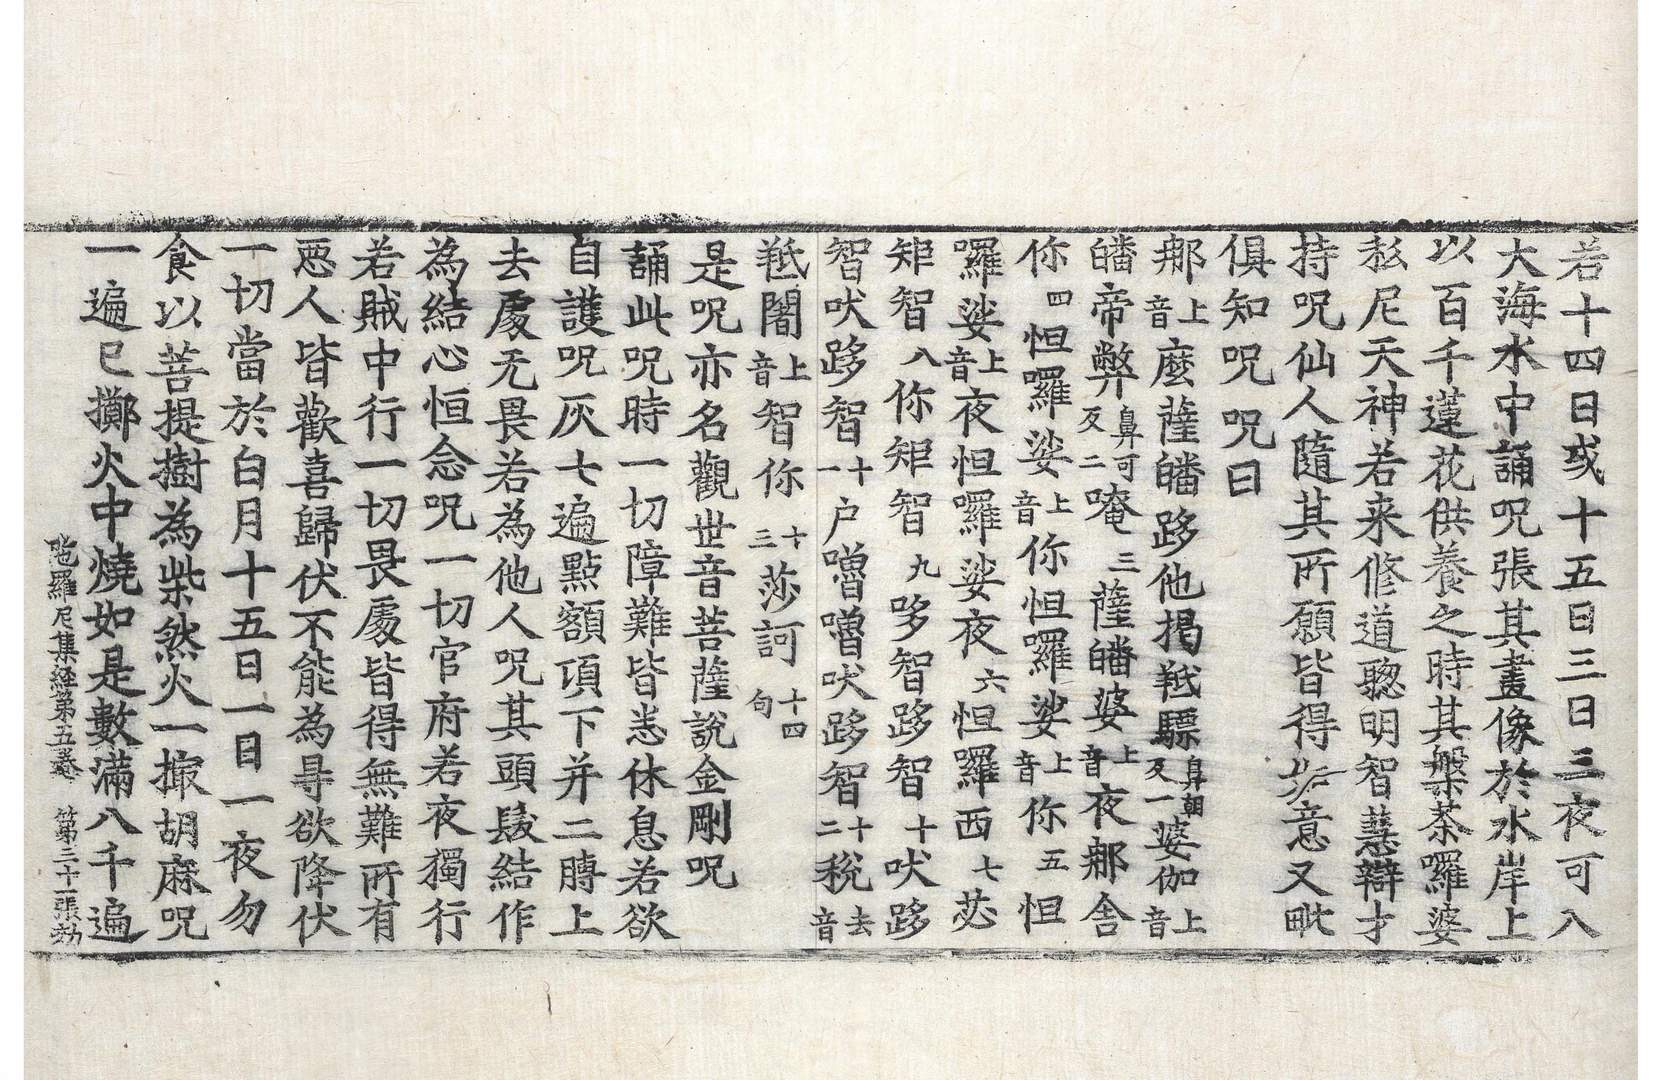 若十四日或十五日三日三夜可入
大海水中誦呪張其畫像於水岸上
以百千蓮花供養之時其槃荼囉婆
私尼天神若来修道聰明智慧辯才
持呪仙人隨其所願皆得歩意又毗
俱知呪呪曰
那上音麼薩皤跢他揭羝驃鼻朝反一婆伽上音
皤帝弊鼻可反二唵三薩皤婆上音夜那舍
你四怛囉娑上音你怛囉娑上音你五怛
囉娑上音夜怛囉娑夜六怛囉西七苾
矩智八你矩智九哆智跢智十吠跢
智吠跢智十一户嚕嚕吠跢智十二税去音
羝闍上音智你十三莎訶十四句
是呪亦名觀世音菩薩說金剛呪
誦此呪時一切障難皆悉休息若欲
自護呪灰七遍點額頂下并二膊上
去處无畏若為他人呪其頭髮結作
為結心恒念呪一切官府若夜獨行
若賊中行一切畏處皆得無難所有
惡人皆歡喜歸伏不能為㝵欲降伏
一切當於白月十五日一日一夜勿
食以菩提樹為柴然火一撮胡麻呪
一遍已擲火中燒如是數滿八千遍
陁羅尼集経第五卷 第三十一張 効